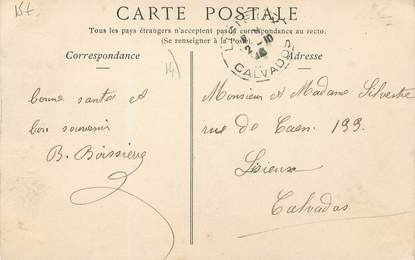 15t
CARTE POSTALE
Tous les pays étrangers n'acceptent pas de correspondance au recto.
(Se renseigner à la Poste).
Correspondance
Adresse
14
CALVADOS
bonne santé et
bon souvenir
B. Boissière
Monsieur et Madame Silvestre
rue de Caen. 199.
Lisieux
Calvados